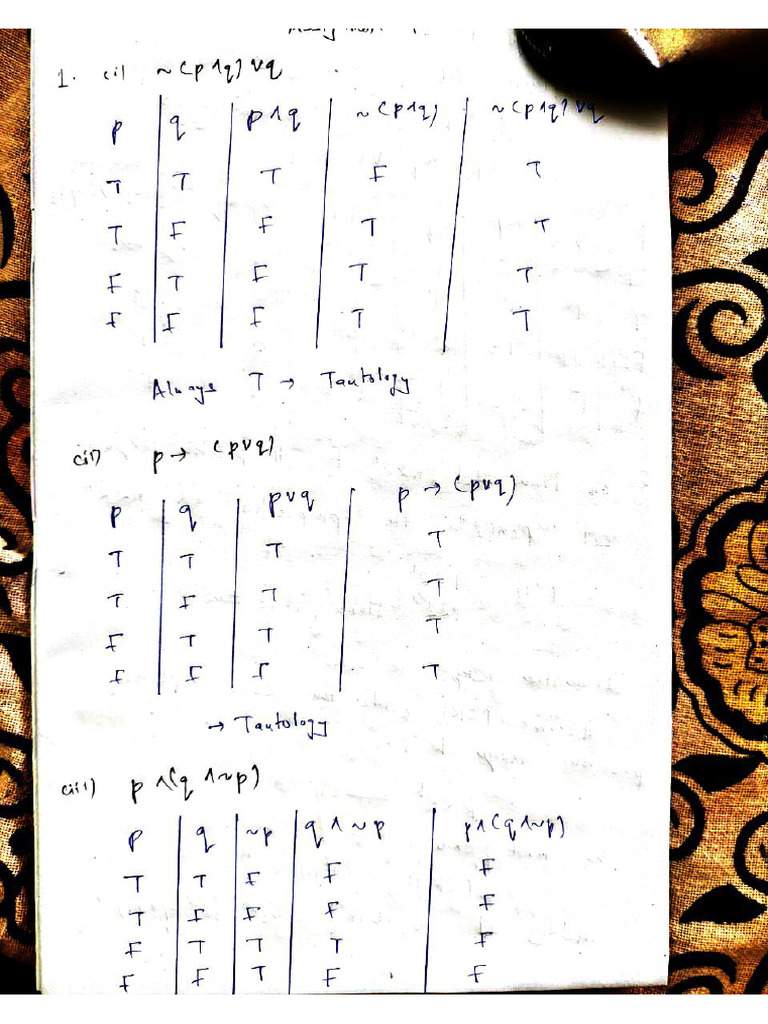 1. (i) ~(p∧q)∨q
p q p∧q ~(p∧q) ~(p∧q)∨q
T T T F T
T F F T T
F T F T T
F F F T T
Always T → Tautology
(ii) p → (p∨q)
p q p∨q p → (p∨q)
T T T T
T F T T
F T T T
F F F T
→ Tautology
(iii) p∧(q∧~p)
p q ~p q∧~p p∧(q∧~p)
T T F F F
T F F F F
F T T T F
F F T F F